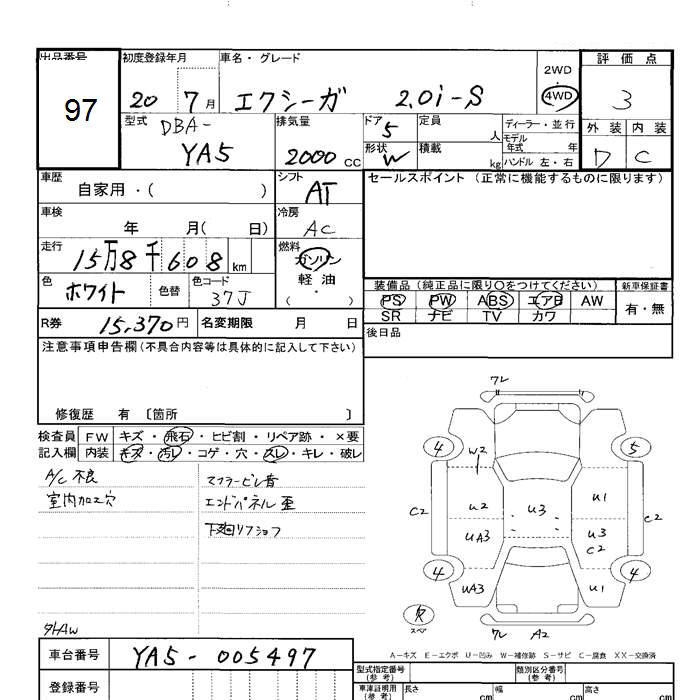 出品番号 初度登録年月 車名・グレード 2WD 評価点
97 20 7月 エクシーガ 2.0i-S 4WD 3
型式 排気量 ドア 定員 ディーラー・並行 外装 内装
DBA- 5 人 モデル年式 年 D C
YA5 2000cc 形状 W 積載 kg ハンドル 左・右
車歴 シフト セールスポイント(正常に機能するものに限ります)
自家用・( ) AT
車検 冷房
年 月( 日) AC
走行 燃料
15万8千608km ガソリン
色 色替 色コード 軽油
ホワイト 37J ( ・ )
装備品(純正品に限り○をつけてください) 新車保証書
PS PW ABS エアB AW 有・無
SR ナビ TV カワ
R券 15,370円 名変期限 月 日 後日品
注意事項申告欄(不具合内容等は具体的に記入して下さい)
修復歴 有〔箇所 〕
検査員 FW キズ・飛石・ヒビ割・リペア跡・×要
記入欄 内装 キズ・汚レ・コゲ・穴・スレ・キレ・破レ
A/C 不良 マフラービレ音
室内加工穴 エンドパネル歪
下廻リ
ワレ
4 5
W2
U2 U3 U1
C2 C2
UA3 U3
C2
4 4
UA3 U1
スペア
ワレ A2
A-キズ E-エクボ U-凹み W-補修跡 S-サビ C-腐食 XX-交換済
車台番号 YA5-005497
登録番号
型式指定番号(参考) 類別区分番号(参考)
車庫証明用(参考) 長さ cm 幅 cm 高さ cm